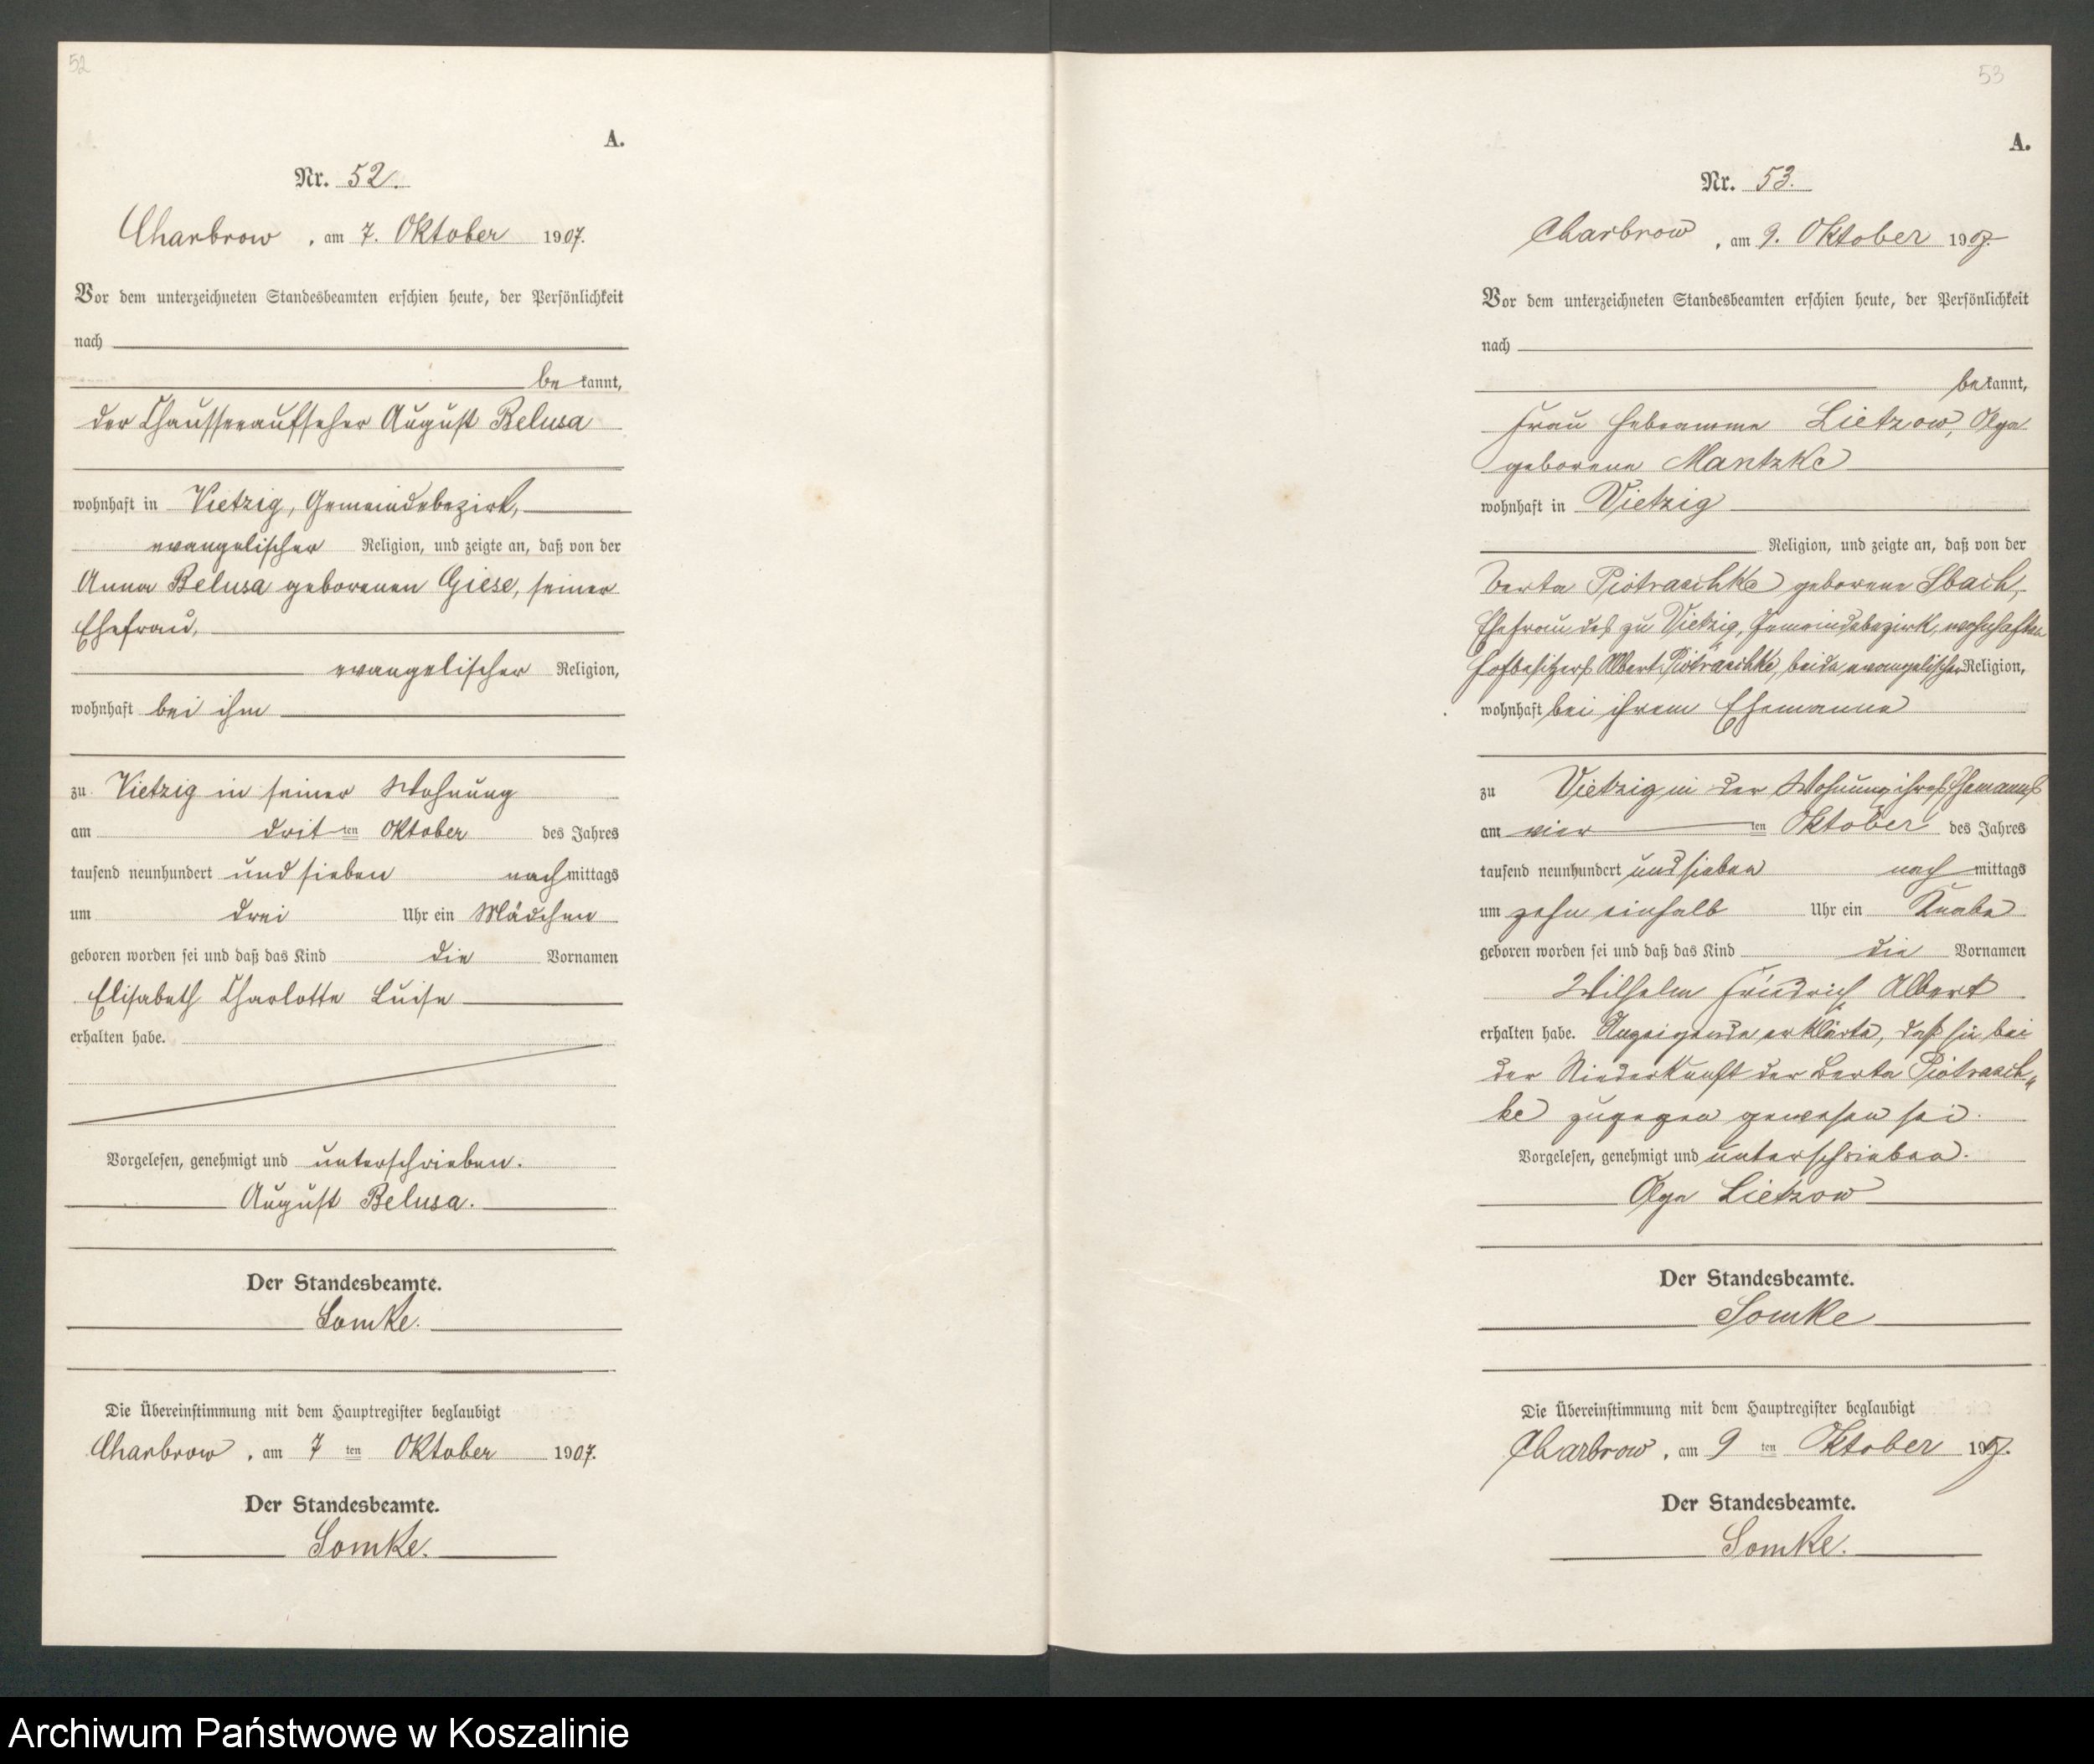 52
A.
Nr. 52.
Charbrow, am 7. Oktober 1907.
Vor dem unterzeichneten Standesbeamten erschien heute, der Persönlichkeit
nach
be kannt,
der Chausseeaufseher August Belusa
wohnhaft in Vietzig, Gemeindebezirk,
evangelischer Religion, und zeigte an, daß von der
Anna Belusa geborenen Giese, seiner
Ehefrau,
evangelischer Religion,
wohnhaft bei ihm
zu Vietzig in seiner Wohnung
am dritten Oktober des Jahres
tausend neunhundert und sieben nachmittags
um drei Uhr ein Mädchen
geboren worden sei und daß das Kind die Vornamen
Elisabeth Charlotte Luise
erhalten habe.
Vorgelesen, genehmigt und unterschrieben.
August Belusa.
Der Standesbeamte.
Somke.
Die Übereinstimmung mit dem Hauptregister beglaubigt
Charbrow, am 7 ten Oktober 1907.
Der Standesbeamte.
Somke.
53
A.
Nr. 53.
Charbrow, am 9. Oktober 1907.
Vor dem unterzeichneten Standesbeamten erschien heute, der Persönlichkeit
nach
bekannt,
Frau Hebeamme Lietzow, Olga
geborene Mantzke
wohnhaft in Vietzig
Religion, und zeigte an, daß von der
Berta Piotraschke geborene Sbach,
Ehefrau des zu Vietzig, Gemeindebezirk, wohnhaften
Hofbesitzers Albert Piotraschke, beide evangelischer Religion,
wohnhaft bei ihrem Ehemanne
zu Vietzig in der Wohnung ihres Ehemanns
am vier ten Oktober des Jahres
tausend neunhundert und sieben nach mittags
um zehn einhalb Uhr ein Knabe
geboren worden sei und daß das Kind die Vornamen
Wilhelm Friedrich Albert
erhalten habe. Anzeigende erklärte, daß sie bei
der Niederkunft der Berta Piotrasch„
ke zugegen gewesen sei.
Vorgelesen, genehmigt und unterschrieben.
Olga Lietzow
Der Standesbeamte.
Somke
Die Übereinstimmung mit dem Hauptregister beglaubigt
Charbrow, am 9 ten Oktober 1907.
Der Standesbeamte.
Somke.
Archiwum Państwowe w Koszalinie